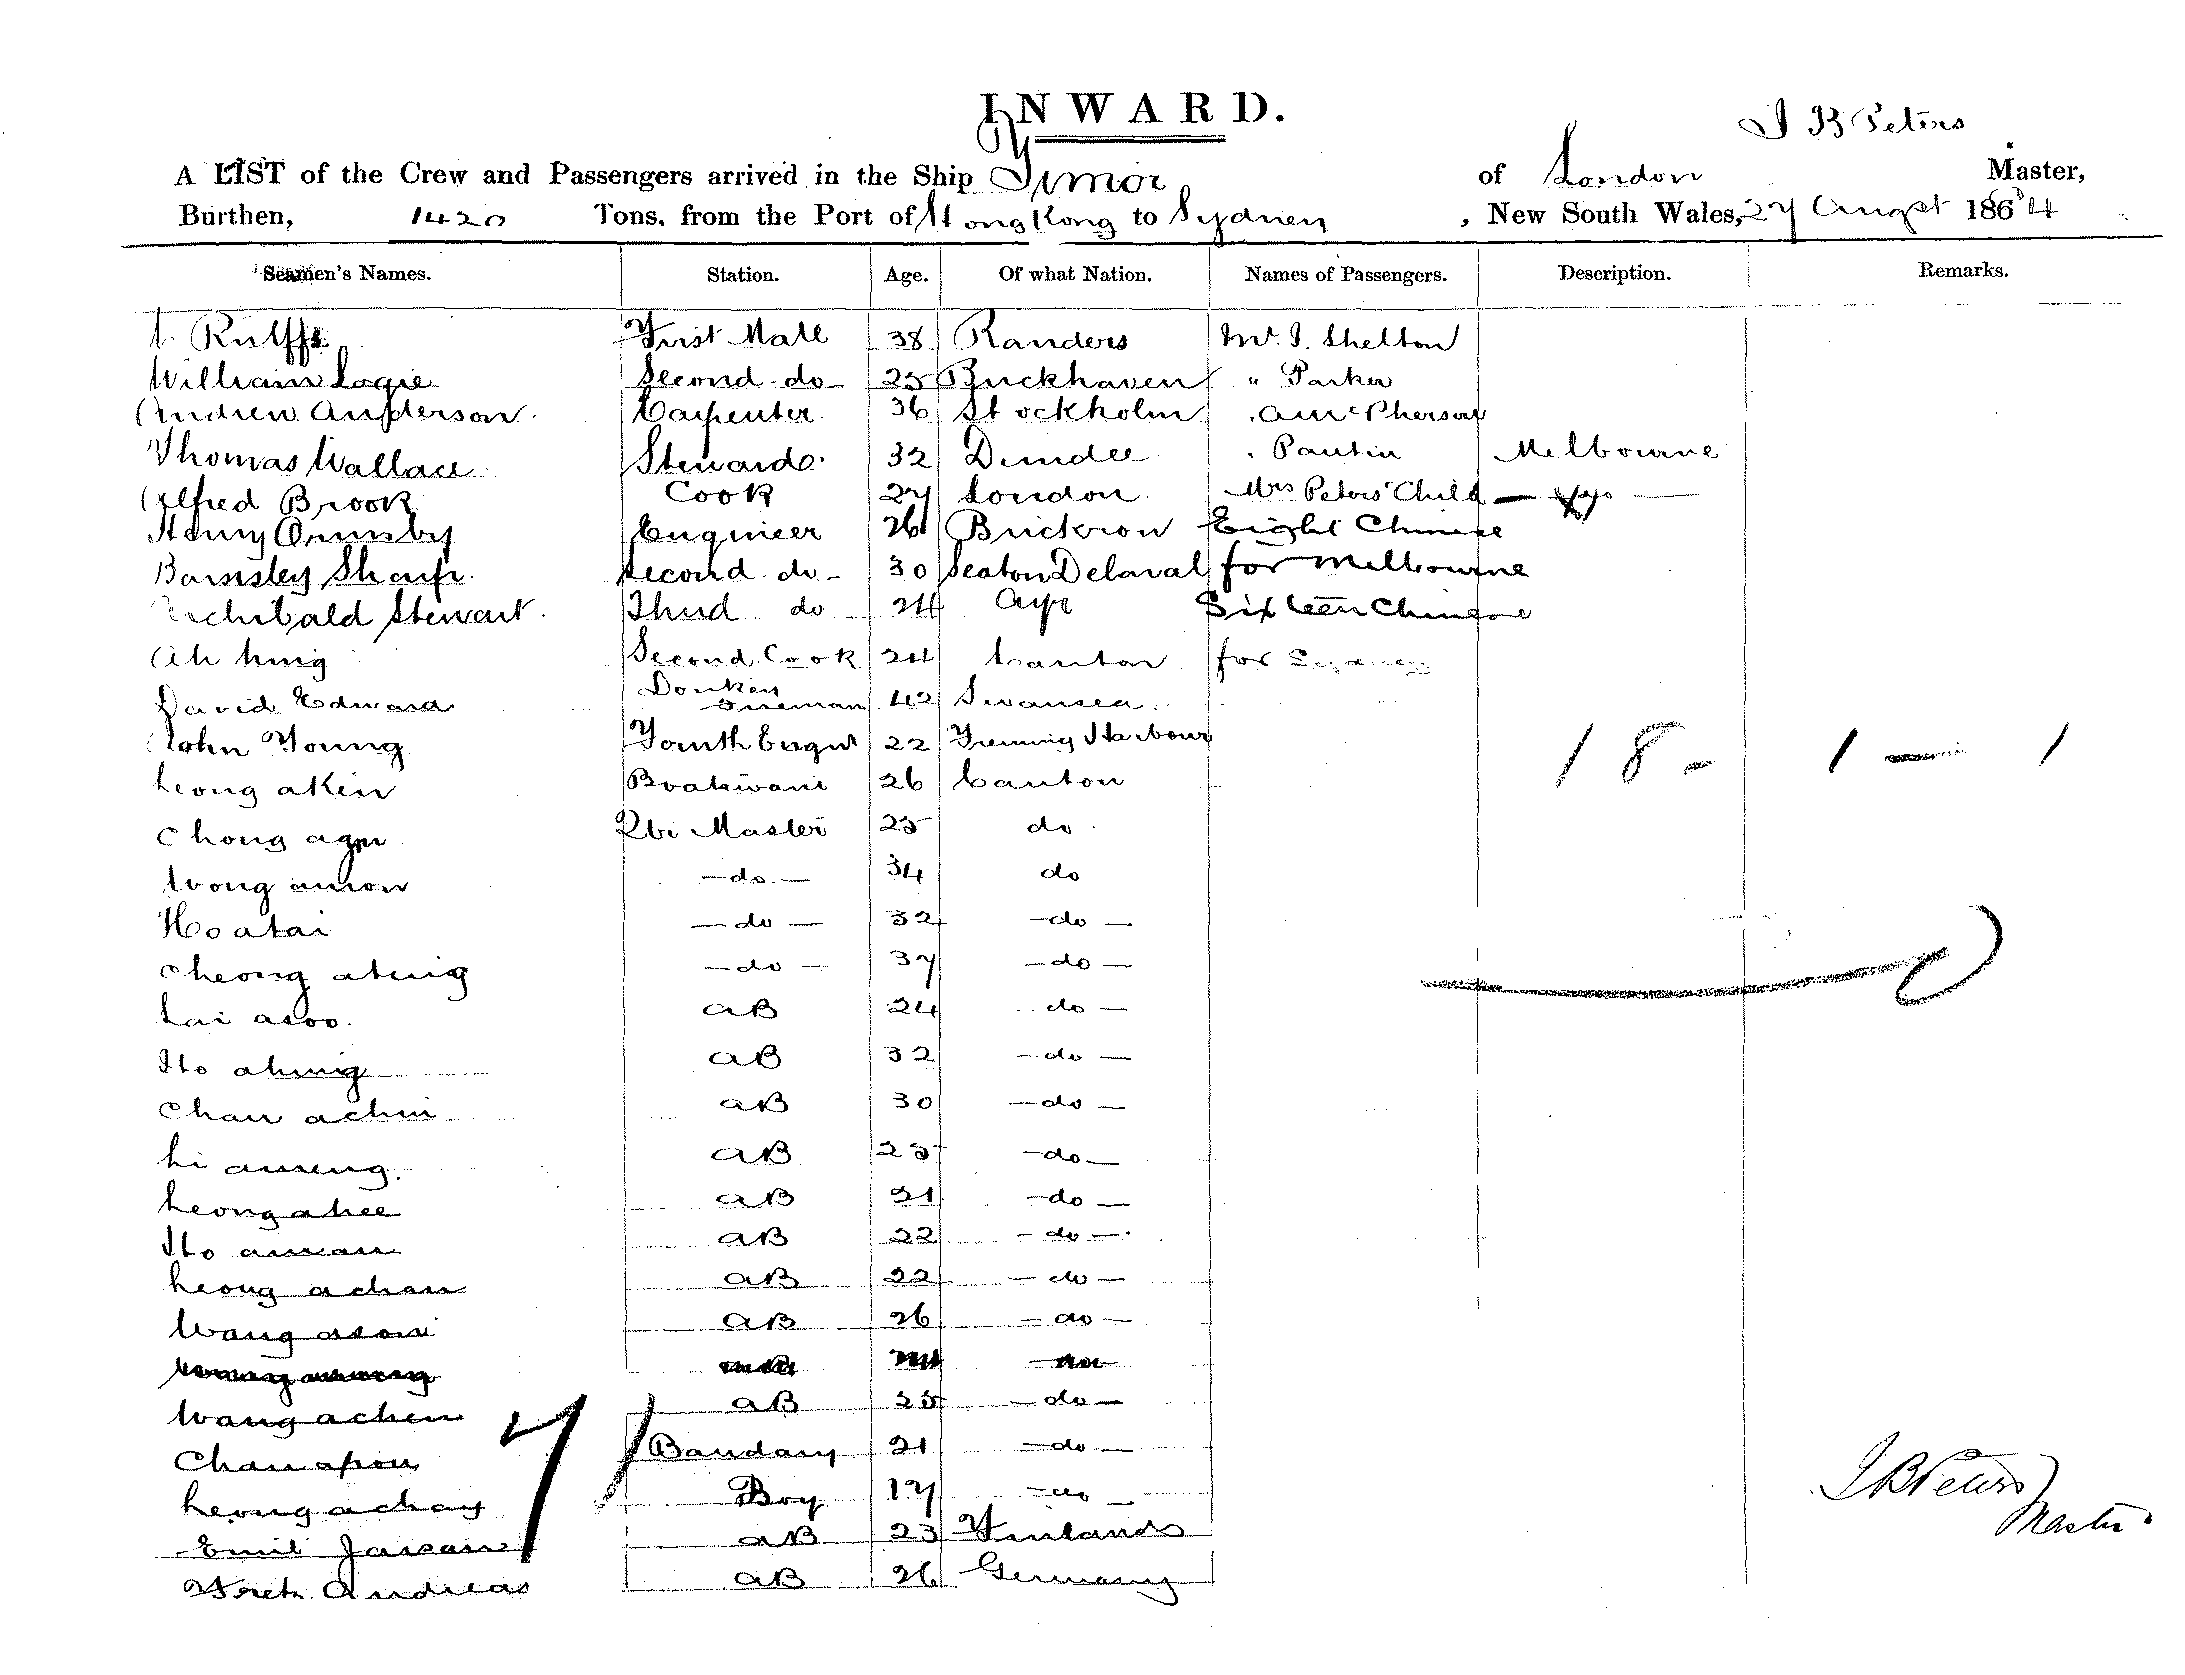 INWARD.
J B Peters
A LIST of the Crew and Passengers arrived in the Ship Timor of London Master,
Burthen, 1420 Tons, from the Port of Hong Kong to Sydney, New South Wales, 27 Augst 1864
Seamen's Names. Station. Age. Of what Nation. Names of Passengers. Description. Remarks.
Rulffs First Mate 38 Randers Mr. J. Shelton
William Logie Second do 25 Buckhaven " Parker
Andrew Anderson Carpenter 36 Stockholm " A McPherson
Thomas Wallace Steward 32 Dundee " Pantin Melbourne
Alfred Brook Cook 27 London Mrs Peters Child
Henry Ormsby Engineer 26 Eight Chinese
Barnsley Sharp Second do 30 Seaton Delaval for Melbourne
Archibald Stewart Third do 24 Sixteen Chinese
Ah hing Second Cook 24 Canton for Sydney
David Edward Donkey Fireman 42 Swansea
John Young Fourth Engnr 22 Harbour 18 - 1 - 1
Leong aken Boatswain 26 Canton
Chong Qtr Master 25 do
Wong amon - do - 34 do
Ho atai - do - 32 - do -
Cheong ating - do - 37 - do -
Lai asoo AB 24 do -
Ho ahing AB 32 - do -
Chan achin AB 30 - do -
Li ameng AB 25 - do -
Leong ahee AB 21 - do -
Ho aman AB 22 - do -
Leong achan AB 22 - do -
Wang AB 26 - do -
Wang achen AB 25 - do -
Chan apon Bandary 21 - do -
Leong achay Boy 17 - do -
Emil AB 23 Finland
Andreas AB 26 Germany
J B Peters
Master